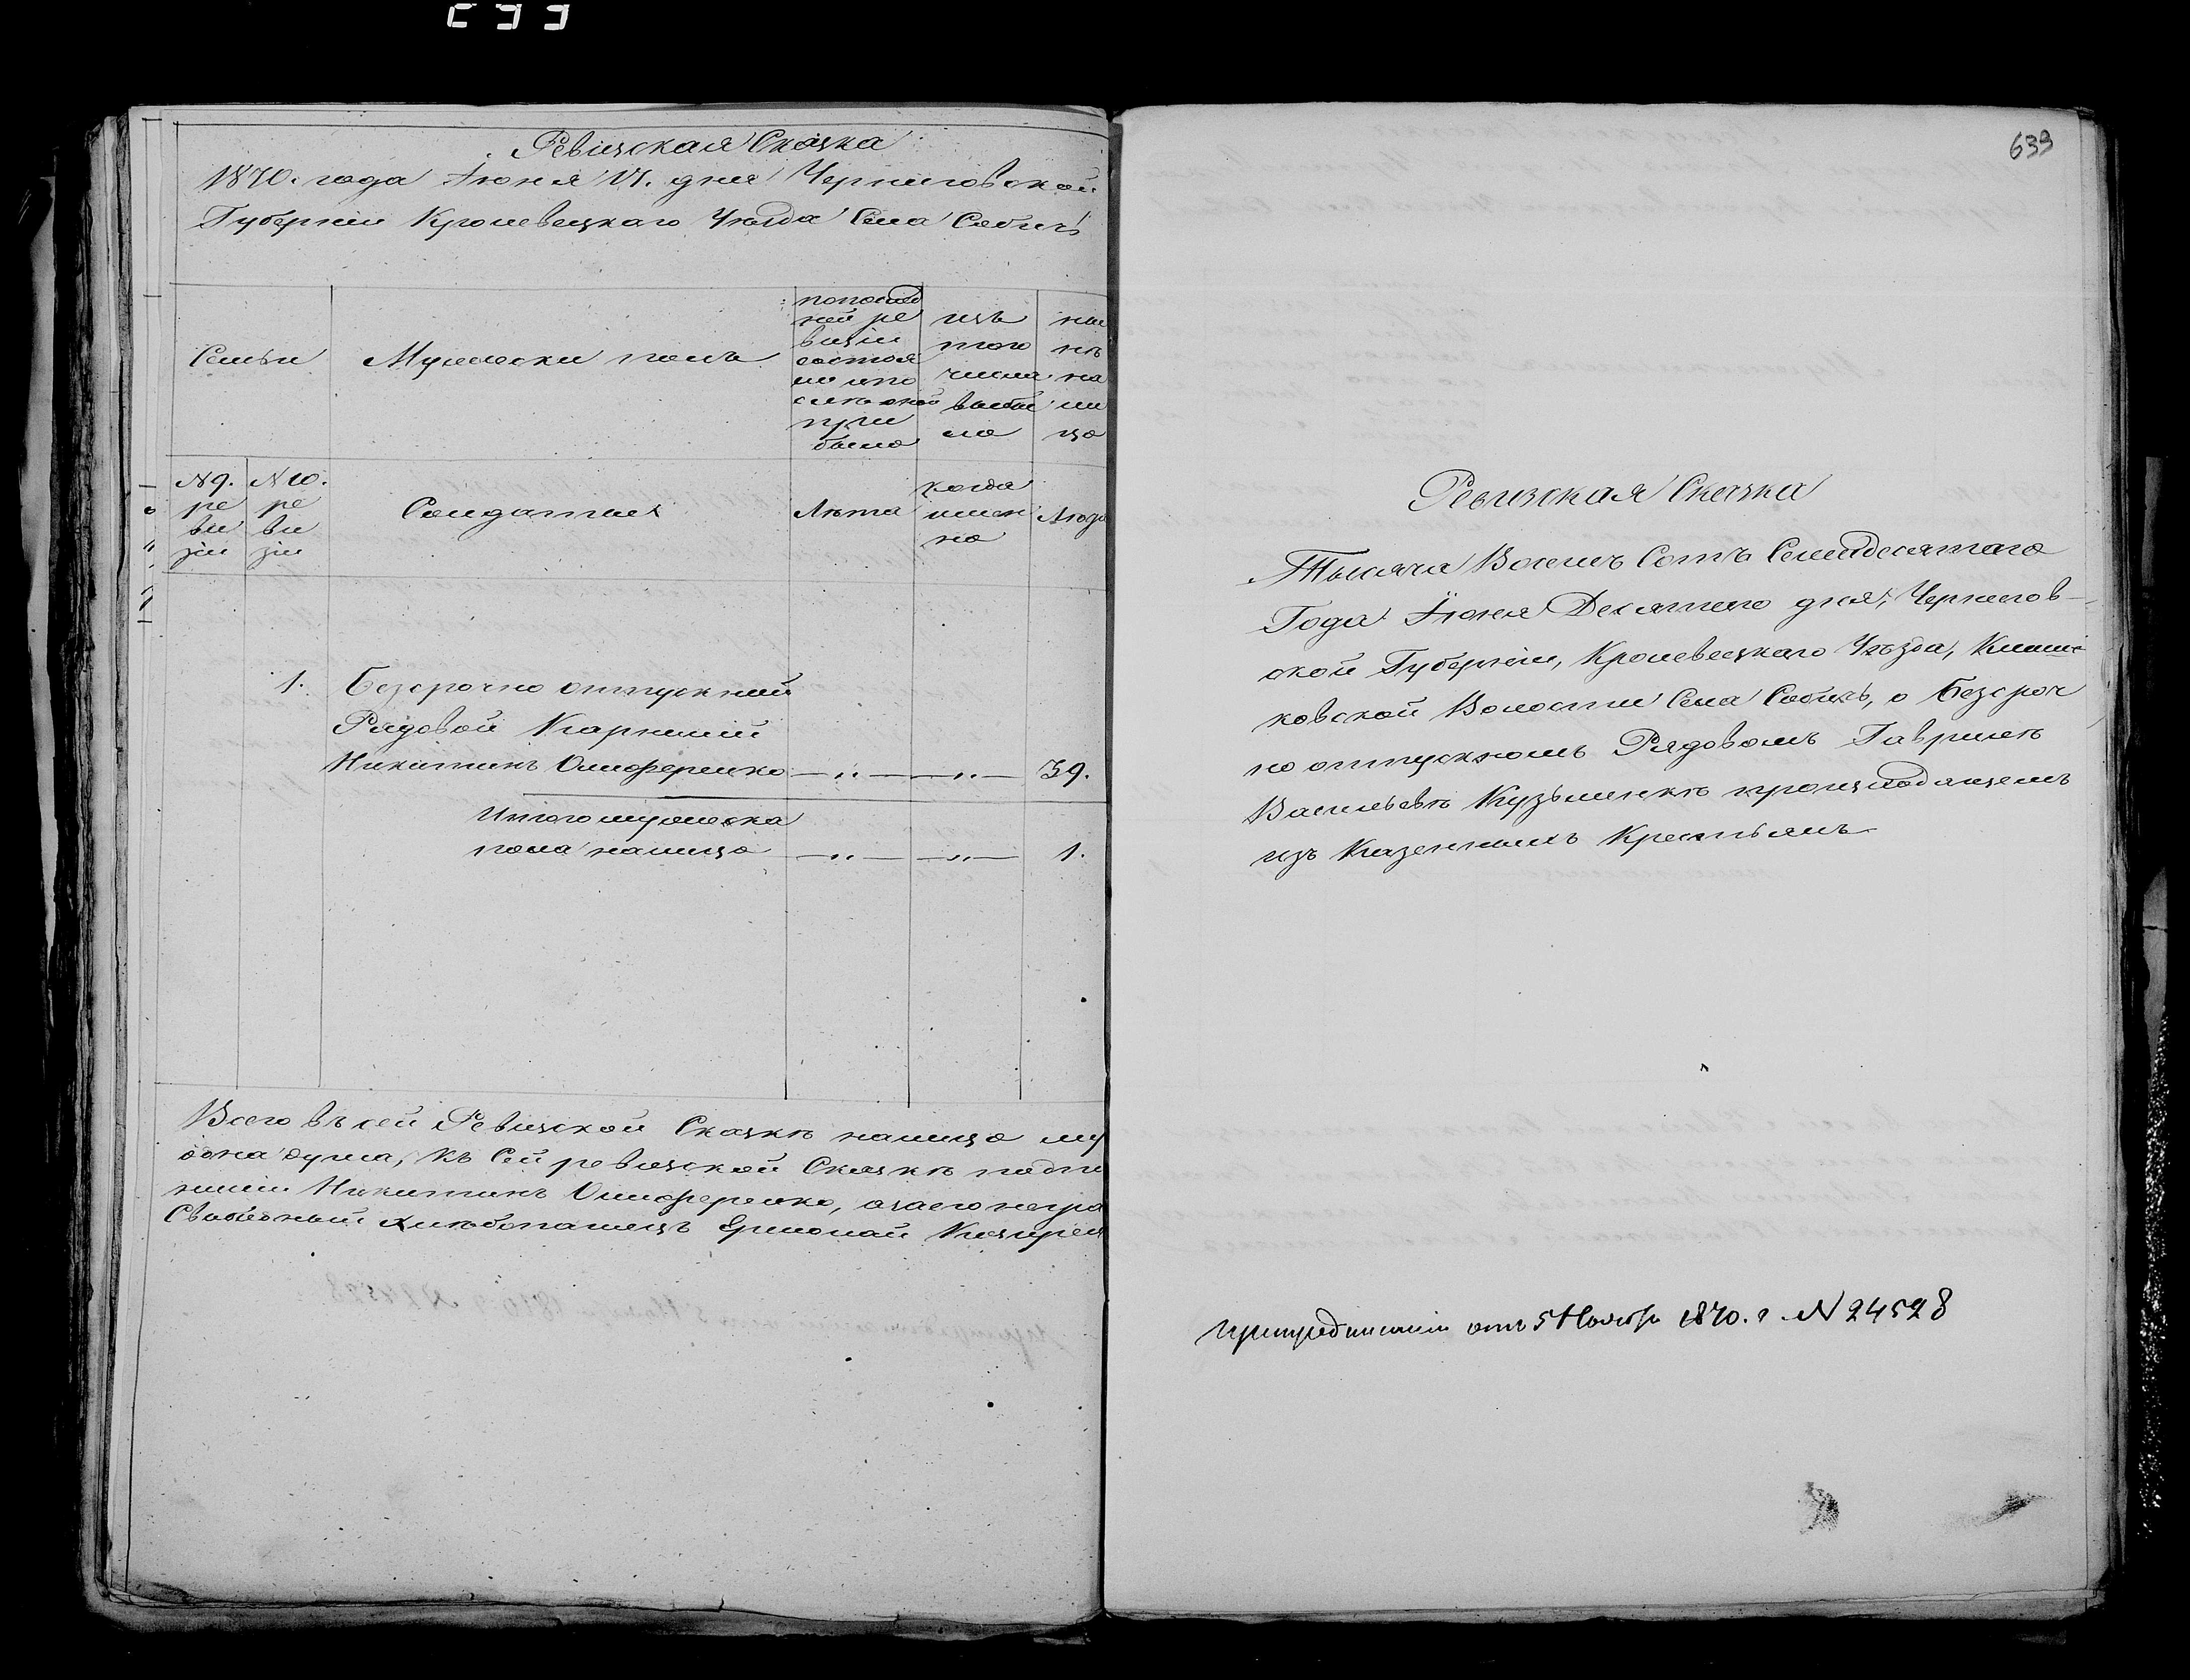 Ревизская Сказка
1870. года Іюня 17. дня Черниговской
Губерніи Кролевецкаго Уѣзда Села Собичь
Семьи
Мужески полъ
по послѣд
ней ре
визіи
состоя
ло и по
слѣ оной
при
было
изъ
того
числа
выбы
ло
ны
нѣ
на
ли
цо
№ 9.
ре
ви
зіи
№ 10.
ре
ви
зіи
Лѣта
когда
имен
но
Лѣта
1. Безсрочно отпускной
Рядовой Карнилій
Никитинъ Олиференко —„— —„— 39.
Итого мужеска
пола налицо —„— —„— 1.
Всего въ сей Ревизской Сказкѣ налицо му
одна душа, къ Сей ревизской Сказкѣ подпи
Никитинъ Олиференко, а за его негра
хлѣбопашецъ Ермолай
633
Ревизская Сказка
Тысяча Восемь Сотъ Семидесятаго
Года Іюня Десятаго дня, Чернигов-
ской Губерніи, Кролевецкаго Уѣзда, Клиш
ковской Волости Села Собичь, о Безсроч
но отпускномъ Рядовомъ Гаврилѣ
Васильевѣ Кузьменкѣ происходящемъ
изъ Казенныхъ Крестьянъ
При предписаніи отъ 5 Ноября 1870. г № 24528